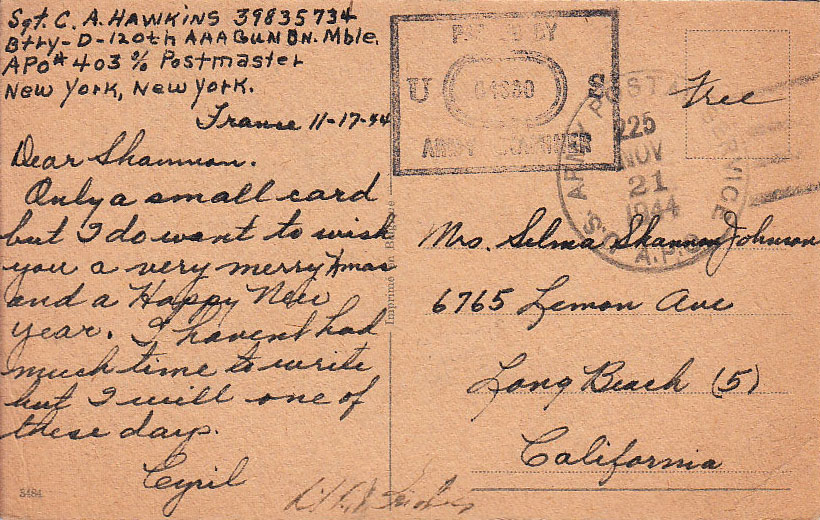 Sgt. C. A. HAWKINS 39835734
Btry-D-120th AAA GUN BN. Mble.
APO # 403 % Postmaster
New York, New York.
France 11-17-44
Dear Shannon.
Only a small card
but I do want to wish
you a very merry Xmas
and a Happy New
year. I havent had
much time to write
but I will one of
these days.
Cyril
S484
Imprimé en Belgique
PASSED BY
U S
ARMY EXAMINER
Free
U.S. ARMY POSTAL SERVICE
A.P.O.
225
NOV
21
1944
Mrs. Selma Shannon Johnson
6765 Lemon Ave
Long Beach (5)
California